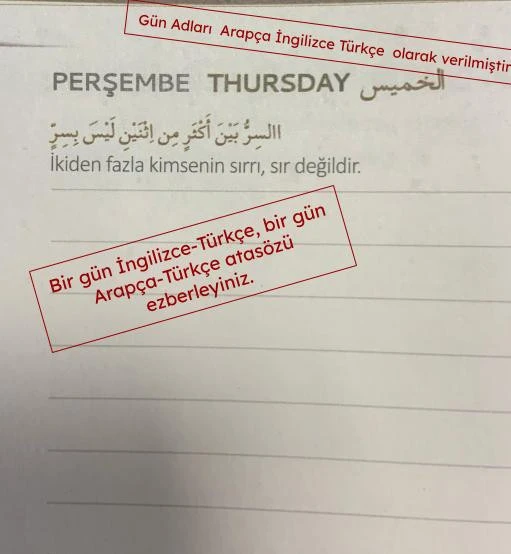 Gün Adları Arapça İngilizce Türkçe olarak verilmiştir
PERŞEMBE THURSDAY الخميس
االسِرُّ بَيْنَ أَكْثَرٍ مِن اِثْنَيْنِ لَيْسَ بِسِرٍّ
İkiden fazla kimsenin sırrı, sır değildir.
Bir gün İngilizce-Türkçe, bir gün
Arapça-Türkçe atasözü
ezberleyiniz.